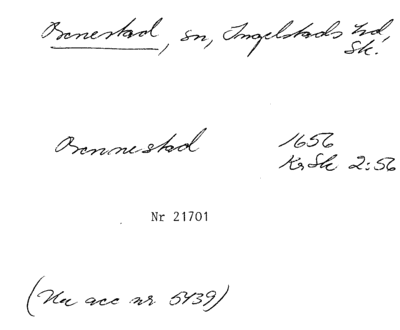 Benestad, sn, Ingelstads hd, Sk.
Bennestad 1656
KrSk 2:56
Nr 21701
(Ua acc nr 5439)